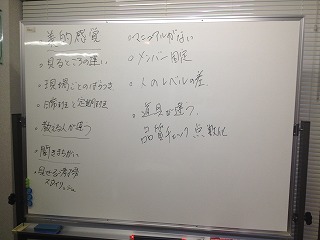 美的感覚
○見るところの違い
○現場ごとのばらつき
○日常清掃と定期清掃
○教える人が違う
○聞きまちがい
○見せる清掃
スタイリッシュ
○マニュアルがない
○メンバー固定
○人のレベルの差
○道具が違う
品質チェック 点数化